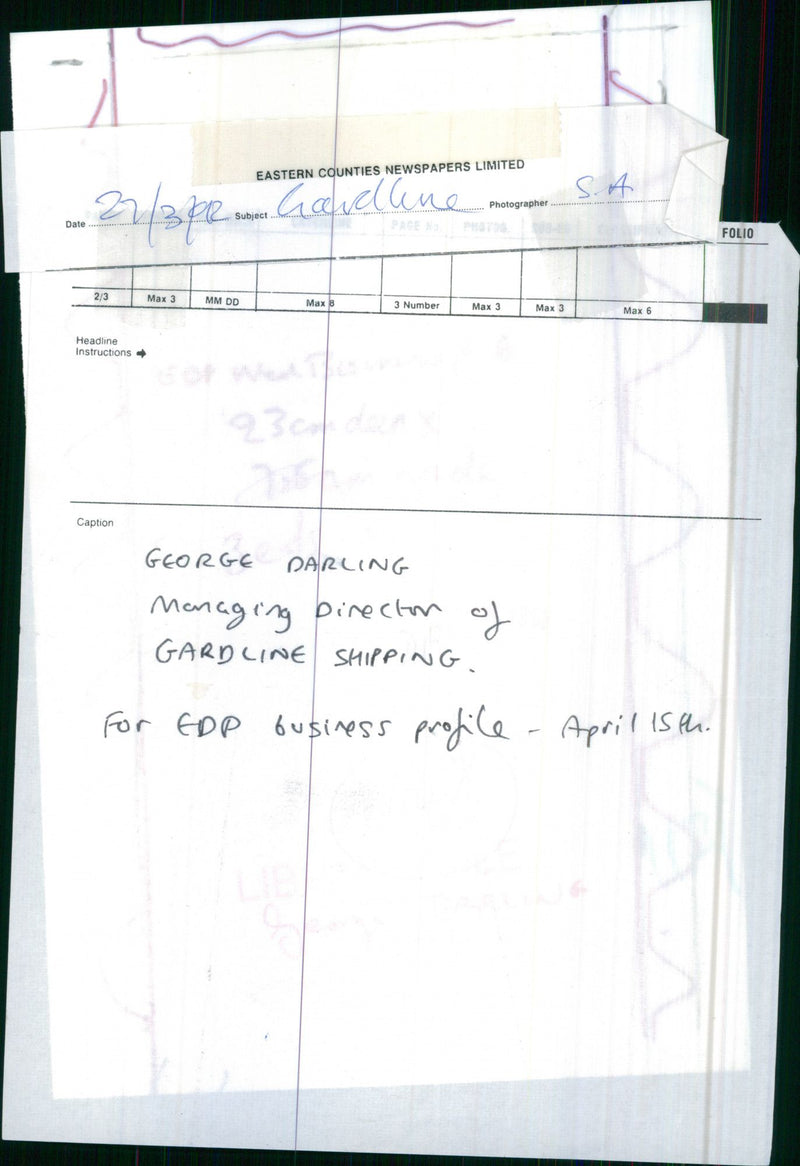 EASTERN COUNTIES NEWSPAPERS LIMITED
Date Subject Gardline Photographer S.A
PAGE No.
FOLIO
2/3 Max 3 MM DD Max 8 3 Number Max 3 Max 3 Max 6
Headline
Instructions ➔
23cm deep x
Caption
GEORGE DARLING
Managing Director of
GARDLINE SHIPPING.
For EDP business profile - April 15th.
LIB
George DARLING